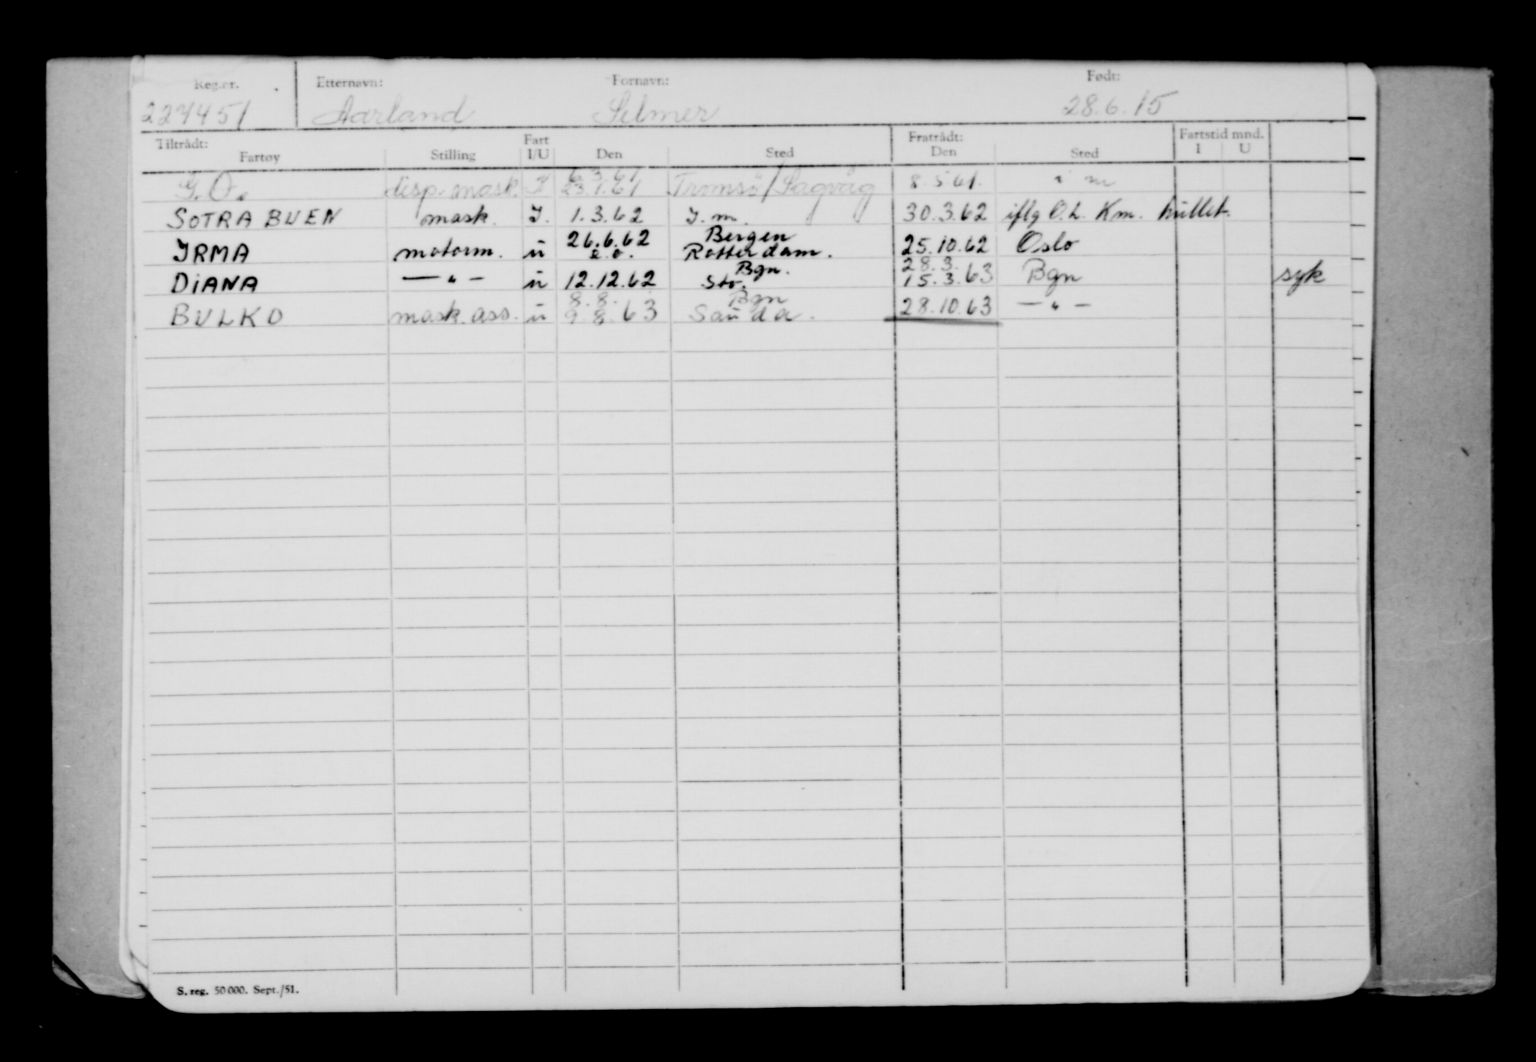 Reg.nr. Etternavn: Fornavn: Født:
227451 Aarland Selmer 28.6.15
Tiltrådt: Fartøy Stilling Fart I/U Den Sted Fratrådt: Den Sted Fartstid mnd. I U
6.3.61
G.O. disp. mask. I 23.1.61 Tromsö/Sagvåg 8.5.61. i m
SOTRA BUEN mask. I. 1.3.62 I.m. 30.3.62 iflg O.L. Km. hullet.
26.6.62 Bergen
IRMA motorm. u e.o. Rotterdam. 25.10.62 Oslo
Bgn. 28.3.
DIANA — " — u 12.12.62 Sto. 15.3.63 Bgn syk
8.8. Bgn
BULKO mask. ass. u 9.8.63 Sauda. 28.10.63 — " —
S. reg. 50 000. Sept./51.